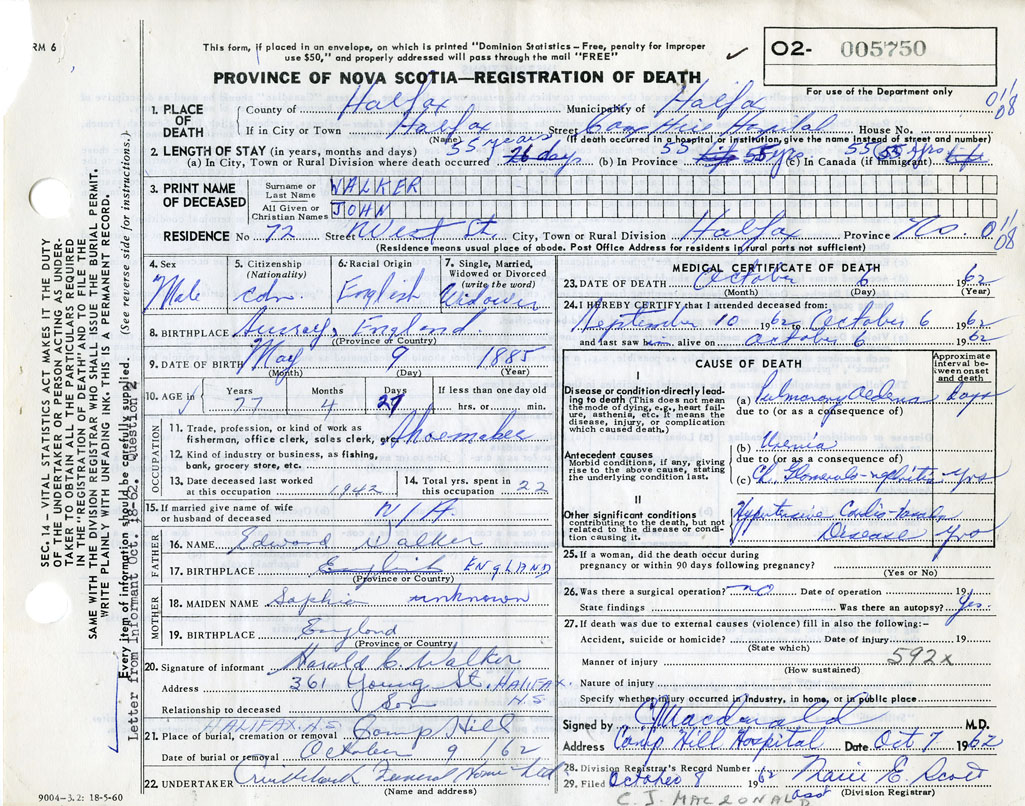 RM 6
This form, if placed in an envelope, on which is printed "Dominion Statistics – Free, penalty for improper
use $50," and properly addressed will pass through the mail "FREE"
O2- 005750
For use of the Department only
PROVINCE OF NOVA SCOTIA—REGISTRATION OF DEATH
1. PLACE OF DEATH
County of Halifax Municipality of Halifax
If in City or Town Halifax Street Camp Hill Hospital House No.
(Name) (If death occurred in a hospital or institution, give name instead of street and number)
2. LENGTH OF STAY (in years, months and days)
55 years 55 55 yrs
(a) In City, Town or Rural Division where death occurred 26 days (b) In Province Life 55 yrs (c) In Canada (if immigrant) Life
3. PRINT NAME OF DECEASED
Surname or Last Name WALKER
All Given or Christian Names JOHN
RESIDENCE No 72 Street West St. City, Town or Rural Division Halifax Province NS
(Residence means usual place of abode. Post Office Address for residents in rural parts not sufficient)
011/08
01/08
4. Sex Male
5. Citizenship (Nationality) cdn.
6. Racial Origin English
7. Single, Married, Widowed or Divorced (write the word) Widower
8. BIRTHPLACE Surrey, England
(Province or Country)
9. DATE OF BIRTH May 9 1885
(Month) (Day) (Year)
10. AGE in Years 77 Months 4 Days 27 If less than one day old
hrs. or min.
OCCUPATION
11. Trade, profession, or kind of work as
fisherman, office clerk, sales clerk, etc. Shoemaker
12. Kind of industry or business, as fishing,
bank, grocery store, etc.
13. Date deceased last worked
at this occupation 1942
14. Total yrs. spent
in this occupation 22
15. If married give name of wife
or husband of deceased N/A
FATHER
16. NAME Edward Walker
17. BIRTHPLACE English ENGLAND
(Province or Country)
MOTHER
18. MAIDEN NAME Sophia unknown
19. BIRTHPLACE England
(Province or Country)
20. Signature of informant Harold C. Walker
Address 361 Young St. HALIFAX. N.S.
Relationship to deceased Son
HALIFAX. N.S.
21. Place of burial, cremation or removal Camp Hill
Date of burial or removal October 9/62
22. UNDERTAKER Cruikshank Funeral Home Ltd
(Name and address)
9004–3.2: 18-5-60
MEDICAL CERTIFICATE OF DEATH
23. DATE OF DEATH October 6 1962
(Month) (Day) (Year)
24. I HEREBY CERTIFY that I attended deceased from:
September 10 1962 to October 6 1962
and last saw him alive on October 6 1962
CAUSE OF DEATH
Approximate interval between onset and death
I
Disease or condition directly leading to death (This does not mean the mode of dying, e.g., heart failure, asthenia, etc. It means the disease, injury, or complication which caused death.)
(a) Pulmonary Oedema Days
due to (or as a consequence of)
Antecedent causes
Morbid conditions, if any, giving rise to the above cause, stating the underlying condition last.
(b) Uremia
due to (or as a consequence of)
(c) Ch. Glomerulo-nephritis yrs
II
Other significant conditions
contributing to the death, but not related to the disease or condition causing it.
Hypertensive Cardio-vascular
Disease yrs
25. If a woman, did the death occur during
pregnancy or within 90 days following pregnancy?
(Yes or No)
26. Was there a surgical operation? no Date of operation 19
State findings Was there an autopsy? Yes.
27. If death was due to external causes (violence) fill in also the following:-
Accident, suicide or homicide? Date of injury 19
(State which)
592x
Manner of injury
(How sustained)
Nature of injury
Specify whether injury occurred in industry, in home, or in public place
Signed by C J Macdonald M.D.
Address Camp Hill Hospital Date Oct 7 1962
28. Division Registrar's Record Number
29. Filed October 9 1962 Marie E. Scott
asst (Division Registrar)
C. J. MACDONALD
SEC. 14 – VITAL STATISTICS ACT MAKES IT THE DUTY
OF THE UNDERTAKER OR PERSON ACTING AS UNDER-
TAKER TO OBTAIN ALL THE PARTICULARS REQUIRED
IN THE "REGISTRATION OF DEATH" AND TO FILE THE
SAME WITH THE DIVISION REGISTRAR WHO SHALL ISSUE THE BURIAL PERMIT.
WRITE PLAINLY WITH UNFADING INK. THIS IS A PERMANENT RECORD.
Every item of information should be carefully supplied. (See reverse side for instructions.)
Letter from Informant Oct. 18-62. Question 2